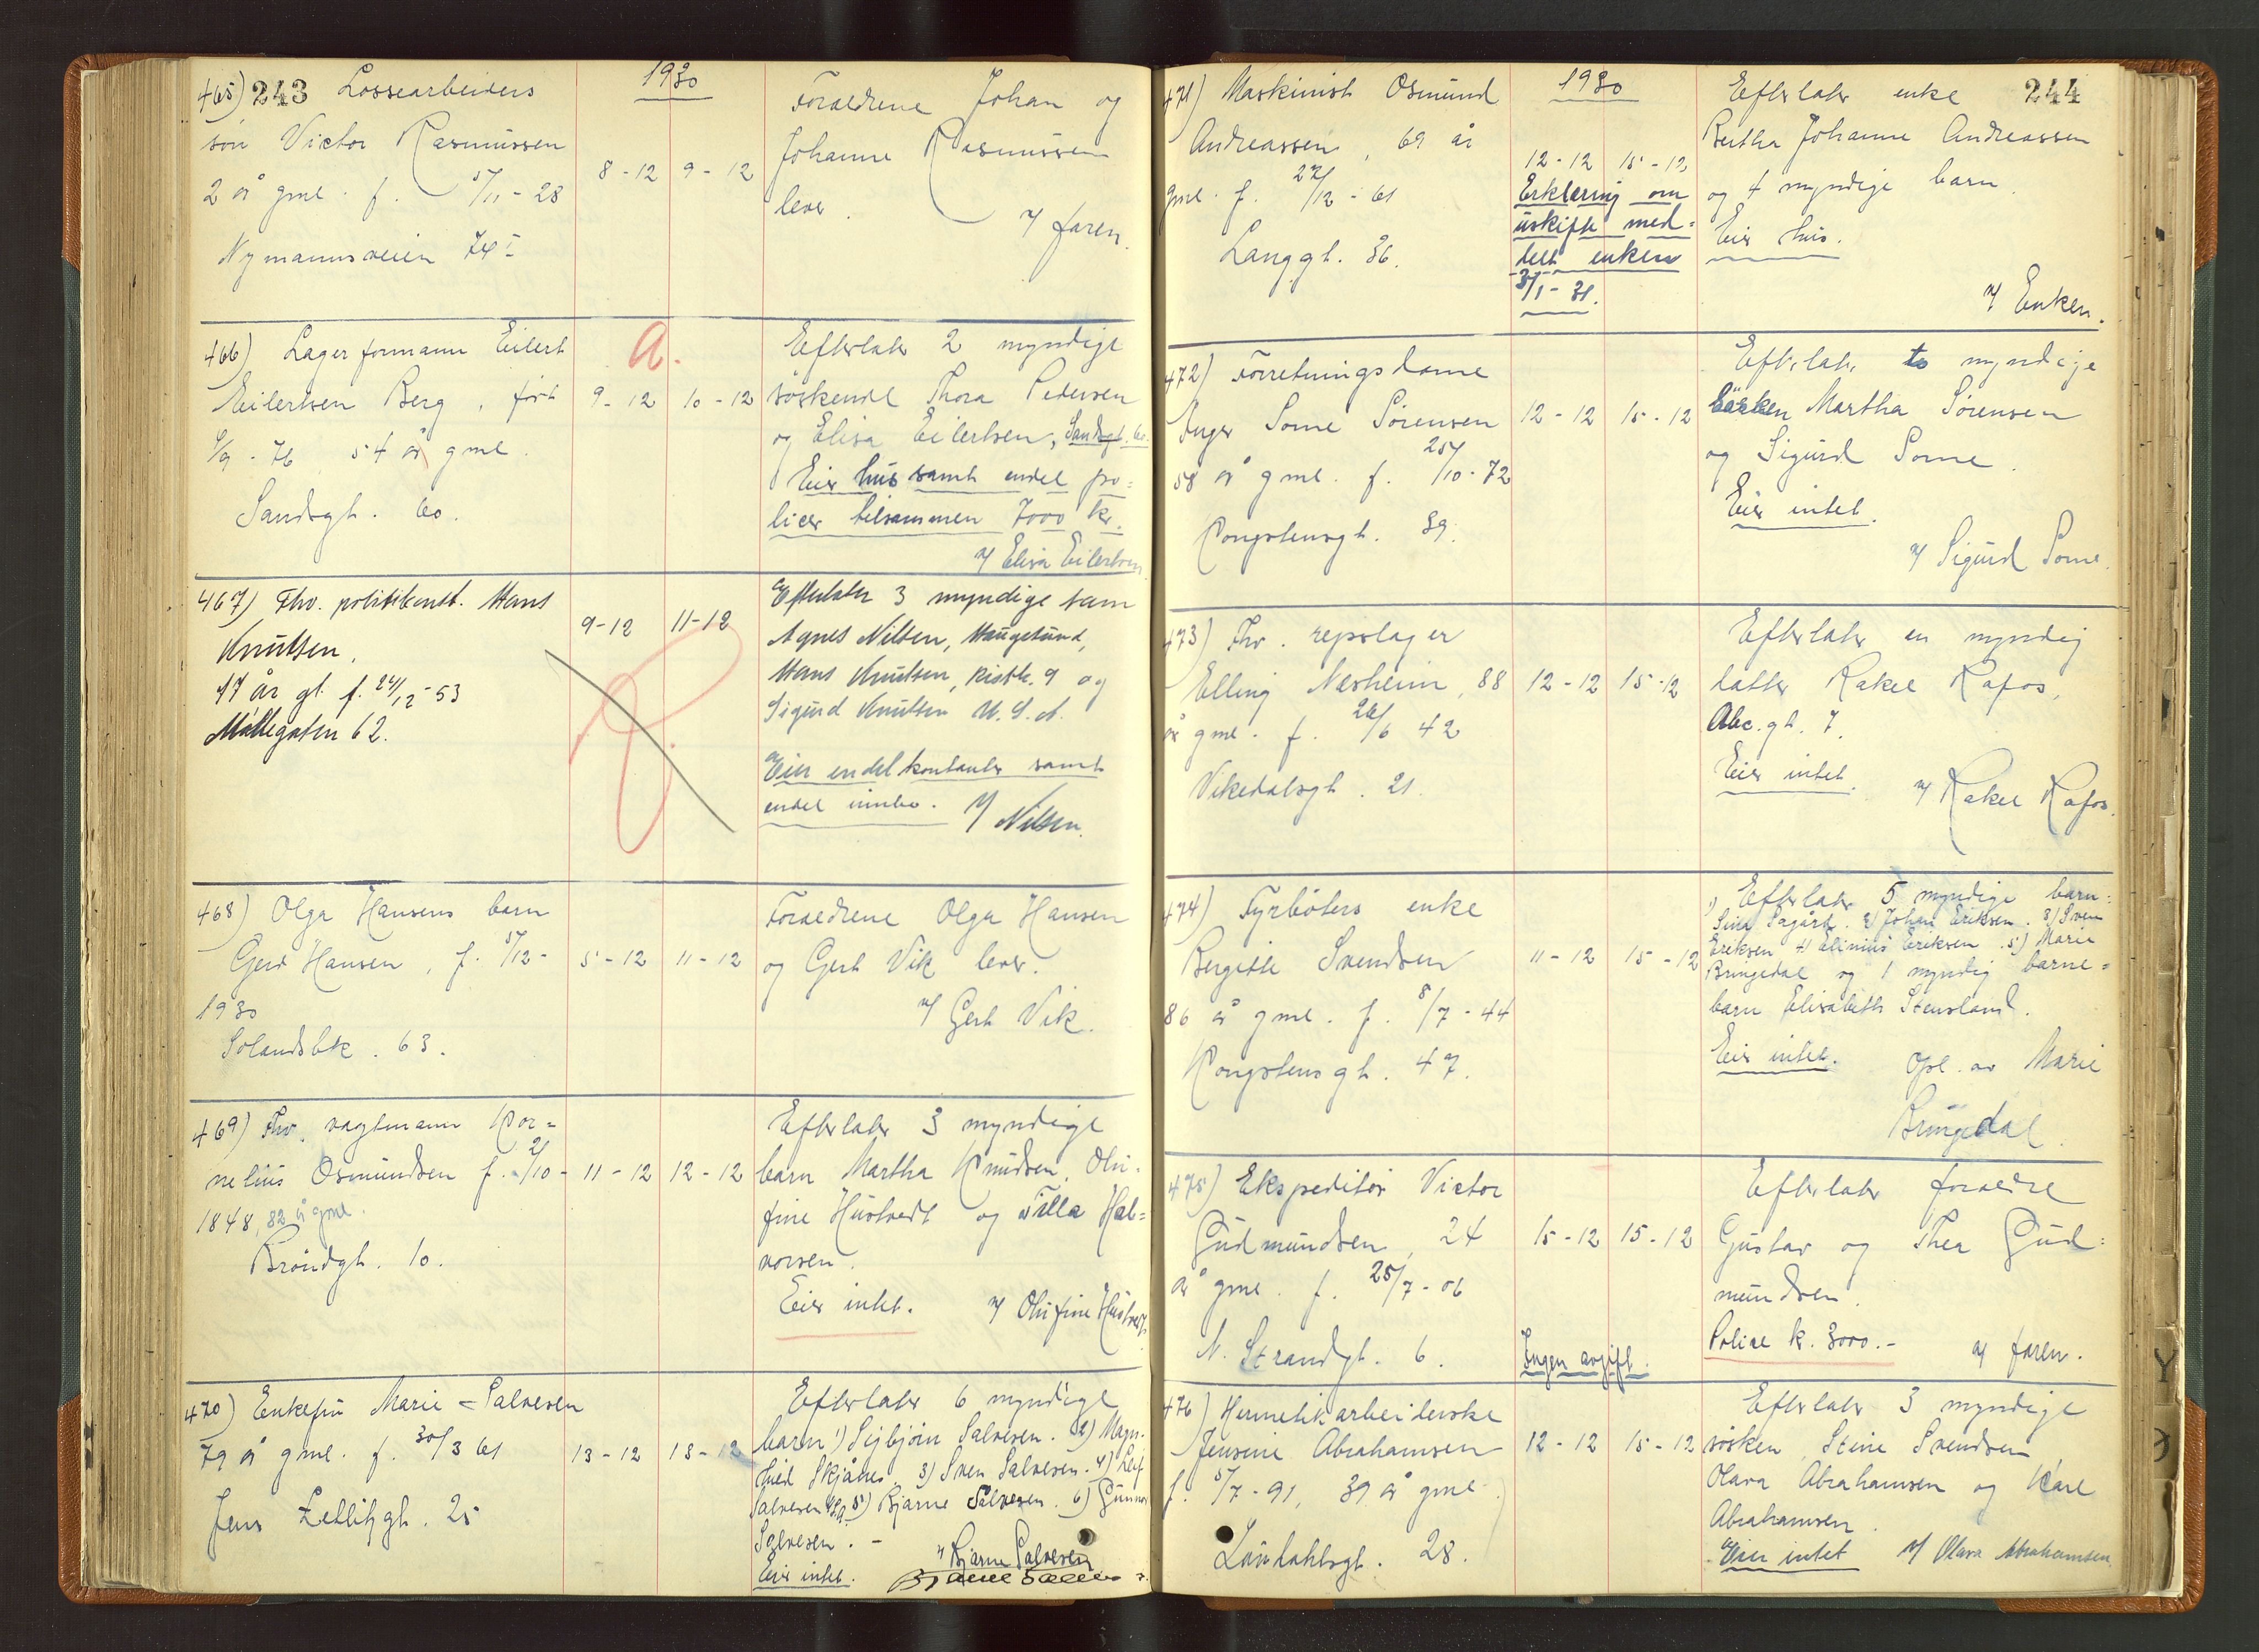 243
1930
465) Lossearbeiders
sön Victor Rasmussen
2 år gml. f. 5/11-28
Nymannsveien 74 I
8-12 9-12
Foraedrene Johan og
Johanne Rasmussen
lever.
v/ faren.
466) Lagerformann Eilert
Eilertsen Berg, född
/9-76 54 år gml.
Sandsgt. 60.
a.
9-12 10-12
Efterlater 2 myndige
söskende Thora Pedersen
og Elisa Eilertsen, Sandsgt. 60.
Eier hus samt endel po=
licer tilsammen 7000 kr.
v/ Elisa Eilertsen
467) Fhv. politikonst. Hans
Knutsen,
77 år gl. f. 24/12-53
Møllegaten 62.
9-12 11-12
Efterlater 3 myndige barn
Agnes Nilsen, Haugesund,
Hans Knutsen, 9 og
Sigurd Knutsen U.S.A.
Eier endel kontanter samt
endel innbo. v/ Nilsen.
468) Olga Hansens barn
Gerd Hansen, f. 5/12-
1930
Solandsbk. 63.
5-12 11-12
Foraedrene Olga Hansen
og Gert Vik lever.
v/ Gert Vik.
469) Fhv. vagtmann Kor=
nelius Osmundsen f. 21/10-
1848, 82 år gml.
Bröndgt. 10.
11-12 12-12
Efterlater 3 myndige
barn Martha Knudsen, Olu-
fine Hustvedt og Tilla Hal=
vorsen.
Eier intet. v/ Olufine Hustvedt
470) Enkefru Marie Salvesen
79 år gml. f. 30/3 61
Jens Zetlitzgt. 25
13-12 13-12
Efterlater 6 myndige
barn 1) Sigbjörn Salvesen. 2) Magn-
hild Skjånes. 3) Sven Salvesen. 4) Leif
Salvesen USA 5) Bjarne Salvesen. 6) Gunnar
Salvesen. -
Eier intet. v/ Bjarne Salvesen
244
1930
471) Maskinist Osmund
Andreassen, 69 år
gml. f. 27/12-61
Langgt. 36.
12-12 15-12
Erklæring om
uskifte med=
delt enken
3/1-31.
Efterlater enke
Bertha Johanne Andreassen
og 4 myndige barn
Eier hus.
v/ Enken.
472) Forretningsdame
Inger Some Sörensen
58 år gml. f. 25/10-72
Kongstensgt. 39.
12-12 15-12
Efterlater to myndige
Martha Sörensen
og Sigurd Some.
Eier intet.
v/ Sigurd Some.
473) Fhv. repslager
Elling Nesheim, 88
år gml. f. 26/6 42
Vikedalsgt. 21.
12-12 15-12
Efterlater en myndig
datter Rakel Rafos,
Abc.gt. 7.
Eier intet.
v/ Rakel Rafos.
474) Fyrböters enke
Bergitte Svendsen
86 år gml. f. 8/7-44
Kongstensgt. 47.
11-12 15-12
Efterlater 5 myndige barn:
1) Sina 2) Johan Eriksen. 3) Sven
Eriksen 4) Elinius Eriksen 5) Marie
Bringedal og 1 myndig barne=
barn Elisabeth Stensland.
Eier intet. Opl. av Marie
Bringedal.
475) Ekspeditör Victor
Gudmundsen, 24
år gml. f. 25/7-06
N. Strandgt. 6.
15-12 15-12
Ingen avgift.
Efterlater foraedre
Gustav og Thea Gud=
mundsen.
Police kr. 3000.- v/ faren.
476) Hermetikarbeiderske
Jensine Abrahamsen
f. 5/7-91, 39 år gml.
28.
12-12 15-12
Efterlater 3 myndige
søsken, Stine Svendsen
Olava Abrahamsen og Karl
Abrahamsen.
Eier intet v/ Olava Abrahamsen.